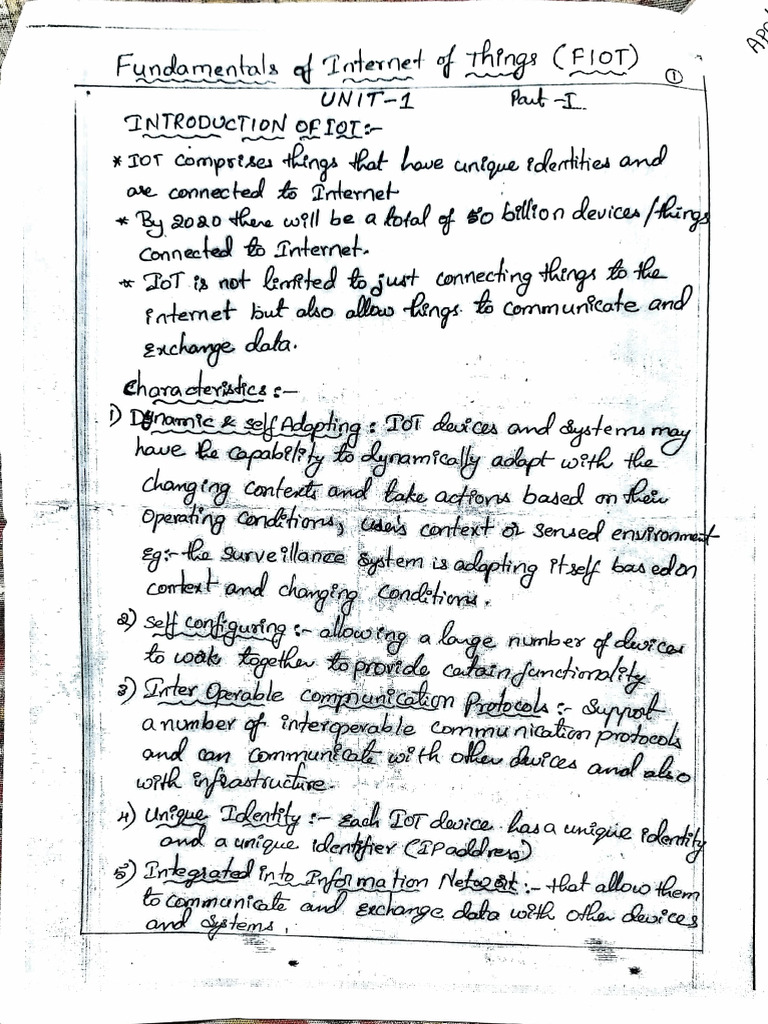 Fundamentals of Internet of Things (FIOT)
1
UNIT-1 Part-I
INTRODUCTION OF IOT:-
* IOT comprises things that have unique identities and
are connected to Internet
* By 2020 there will be a total of 50 billion devices/things
connected to Internet.
* IoT is not limited to just connecting things to the
internet but also allow things to communicate and
Exchange data.
Characteristics:-
1) Dynamic & self Adapting: IOT devices and systems may
have the capability to dynamically adapt with the
changing contexts and take actions based on their
operating conditions, user's context or sensed environment
eg:- the surveillance system is adapting itself based on
context and changing conditions.
2) self configuring:- allowing a large number of devices
to work together to provide certain functionality
3) Inter Operable communication Protocols:- Support
a number of interoperable communication protocols
and can communicate with other devices and also
with infrastructure.
4) Unique Identity:- Each IoT device has a unique identity
and a unique identifier (IP address)
5) Integrated into Information Network:- that allow them
to communicate and exchange data with other devices
and systems.